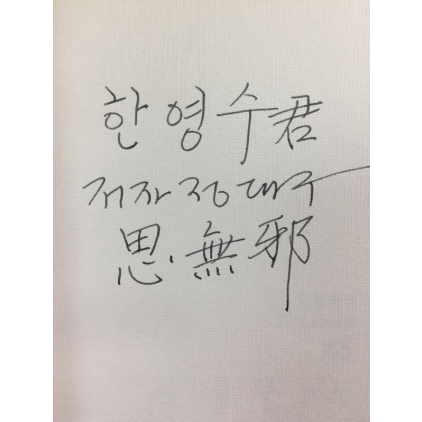 한영수君
저자 정대구
思·無邪